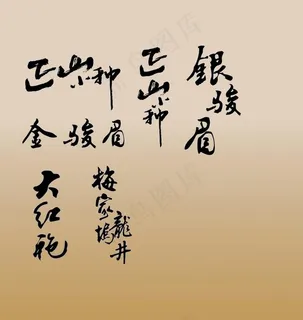 正山小种
正山小种
銀骏眉
金骏眉
大红袍
梅家塢龍井